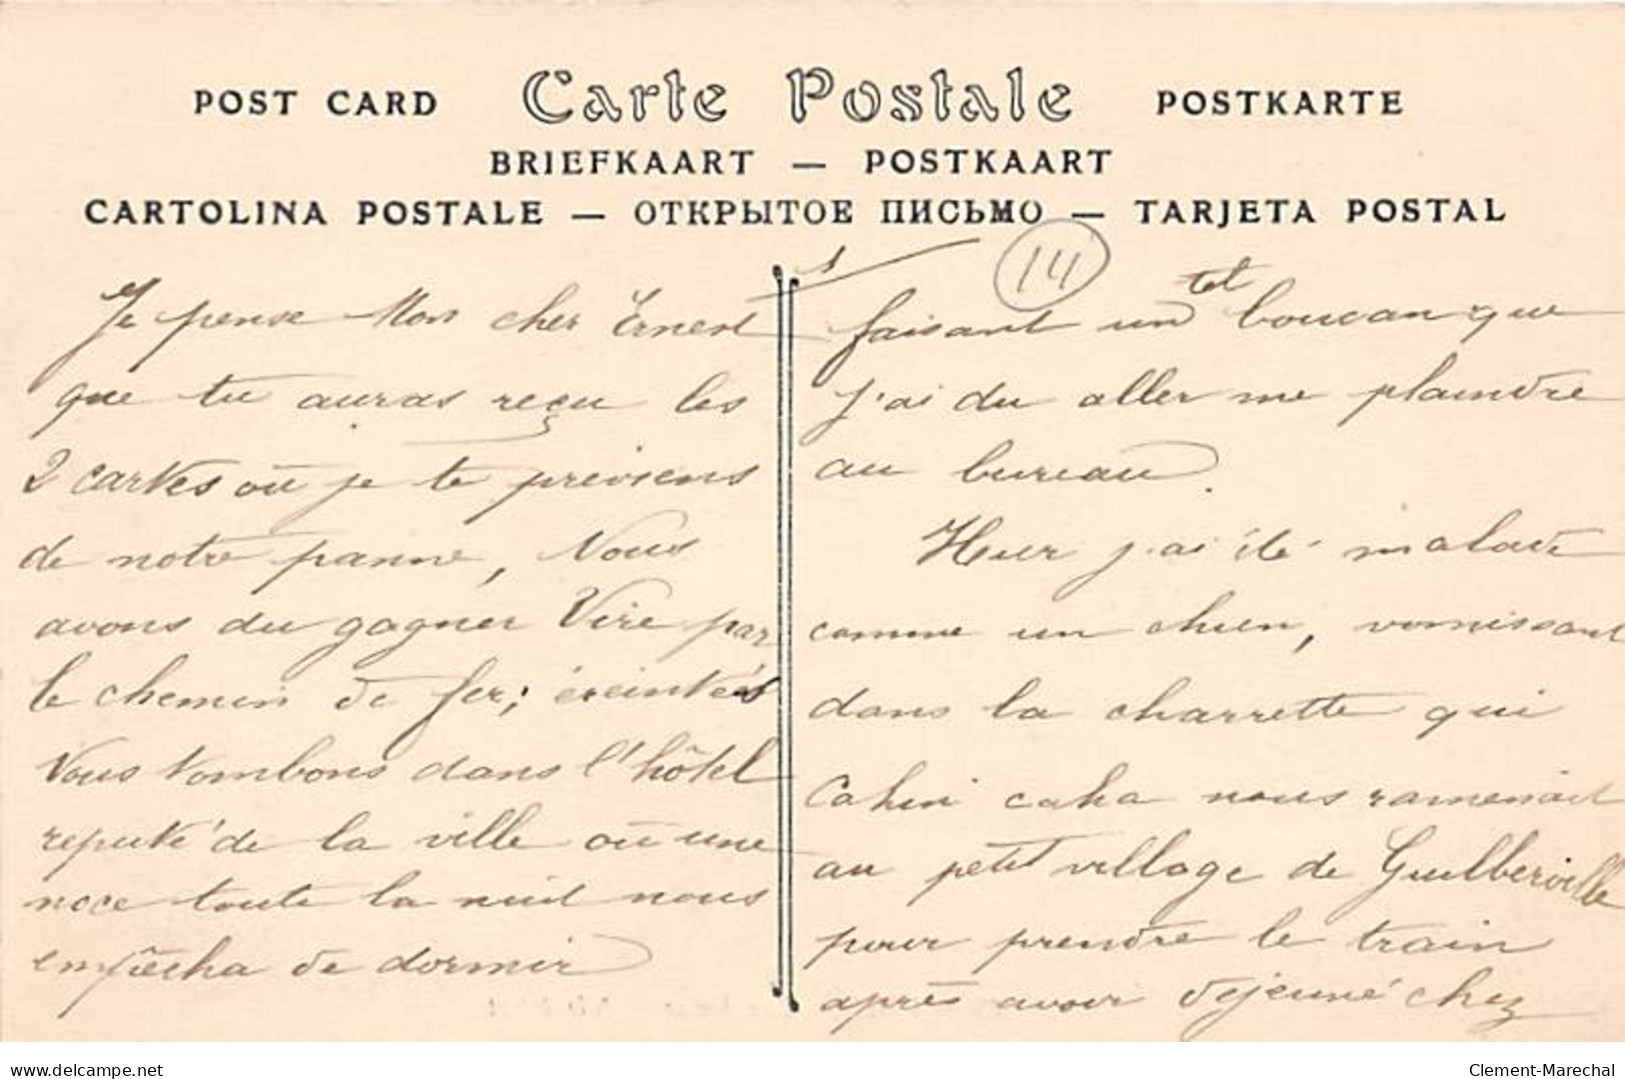 POST CARD Carte Postale POSTKARTE
BRIEFKAART — POSTKAART
CARTOLINA POSTALE — ОТКРЫТОЕ ПИСЬМО — TARJETA POSTAL
1
14
Je pense Mon cher Ernest
que tu auras reçu les
2 cartes où je te préviens
de notre panne, Nous
avons du gagner Vire par
le chemin de fer; éreintés
Nous tombons dans l'hôtel
réputé de la ville où une
noce toute la nuit nous
empêcha de dormir
faisant un tel boucan que
j'ai du aller me plaindre
au bureau.
Hier j'ai été malade
comme un chien, vomissant
dans la charrette qui
Cahin caha nous ramenait
au petit village de Guilberville
pour prendre le train
après avoir déjeuné chez
www.delcampe.net
Clement-Marechal